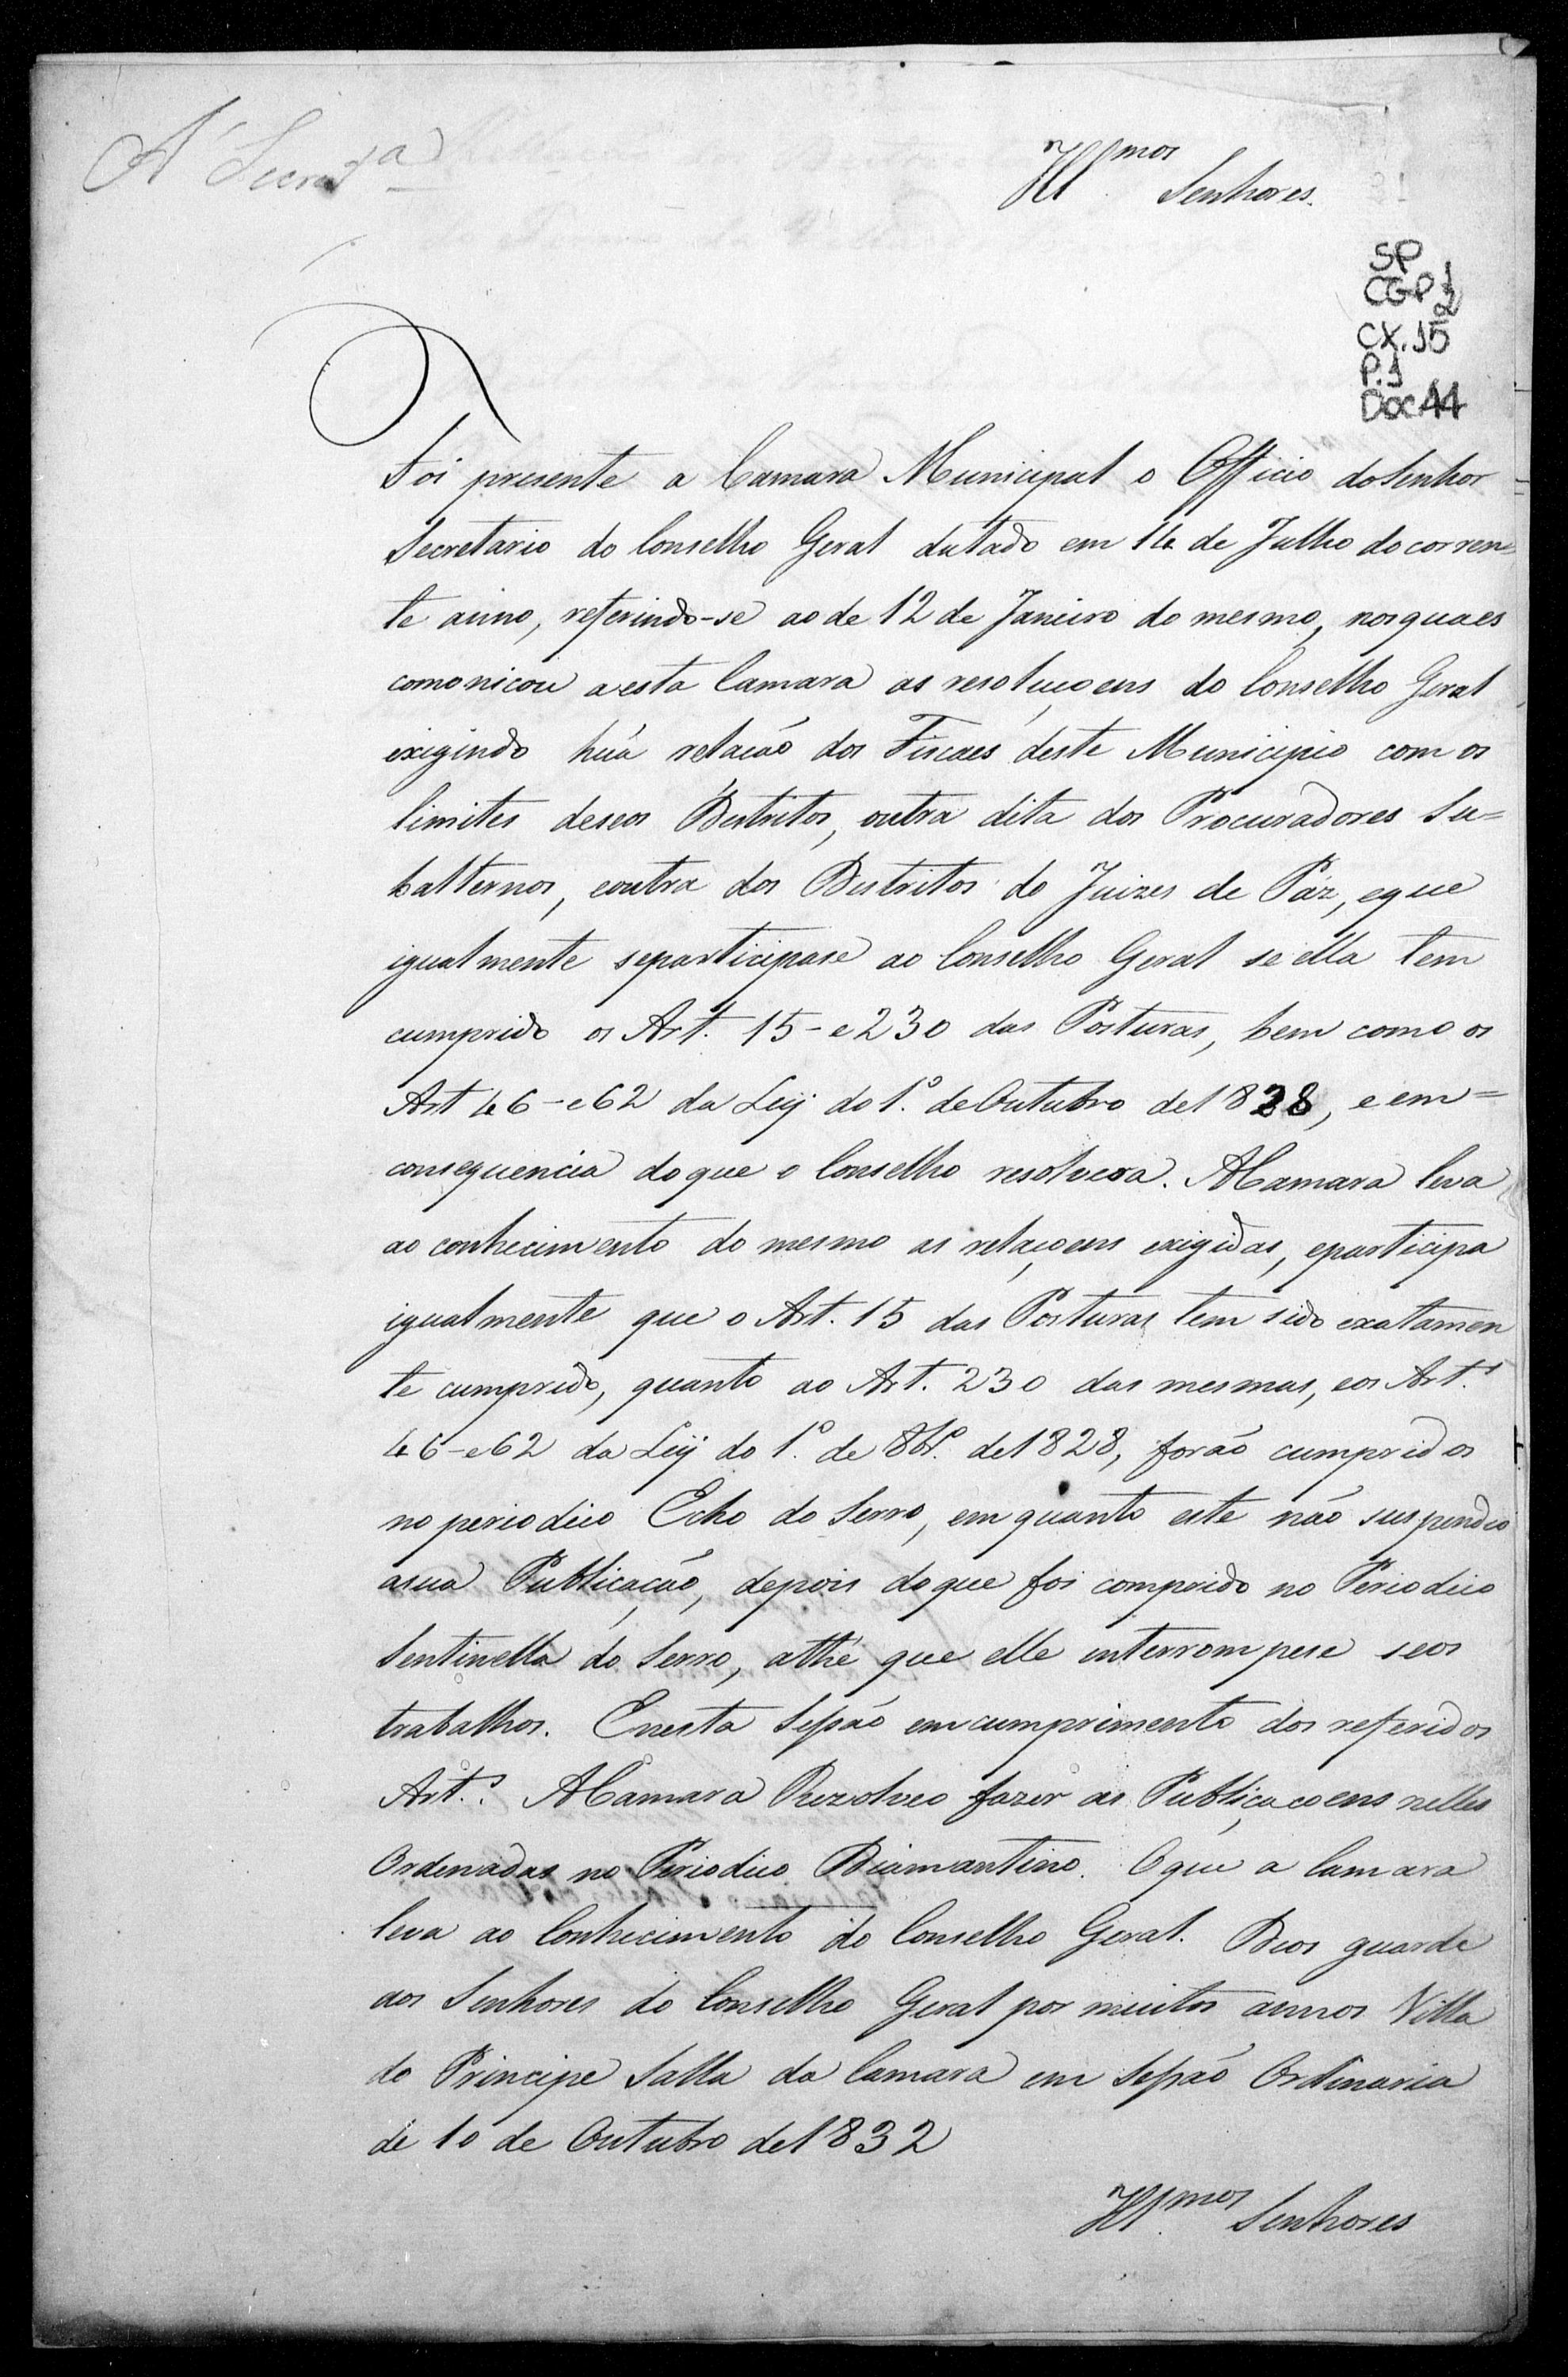 A' Secret.ª
Ill.mos Senhores.
SP
CGP 1
2
CX. 15
P. 1
Doc 44
Foi presente a Camara Municipal o Officio do Senhor
Secretario do Conselho Geral datado em 14 de Julho do corren=
te anno, referindo-se ao de 12 de Janeiro do mesmo, nos quaes
comonicou a esta Camara as resoluçoens do Conselho Geral
exigindo húa relação dos Fiscaes deste Municipio com os
limites de seos Destritos, outra dita dos Procuradores Su=
balternos, e outra dos Destritos do Juizes de Páz, e que
igualmente se participase ao Conselho Geral se ella tem
cumprido os Art. 15 - e 230 das Posturas, bem como os
Art 46 - e 62 da Ley do 1.º de Outubro de 1828, e em=
consequencia do que o Conselho resolvera. A Camara leva
ao conhecimento do mesmo as relaçoens exigidas, e participa
igualmente que o Art. 15 das Posturas tem sido exatamen
te cumprido, quanto ao Art. 230 das mesmas, e os Art.s
46 - e 62 da Ley do 1.º de 8br.º de 1828, forão cumpridos
no periodico Echo do Serro, em quanto este não suspendeo
a sua Publicação, depois do que foi comprido no Periodico
Sentinella do Serro, athé que elle interrompese seos
trabalhos. E nesta Sessão em cumprimento dos referidos
Art.s A Camara Rezolveo fazer as Publicacoens nelles
Ordenadas no Periodico Diamantino. O que a Camara
leva ao Conhecimento do Conselho Geral. Deos guarde
aos Senhores do Conselho Geral por muitos annos Villa
do Principe Salla da Camara em Sessão Ordinaria
de 10 de Outubro de 1832
Ill.mos Senhores